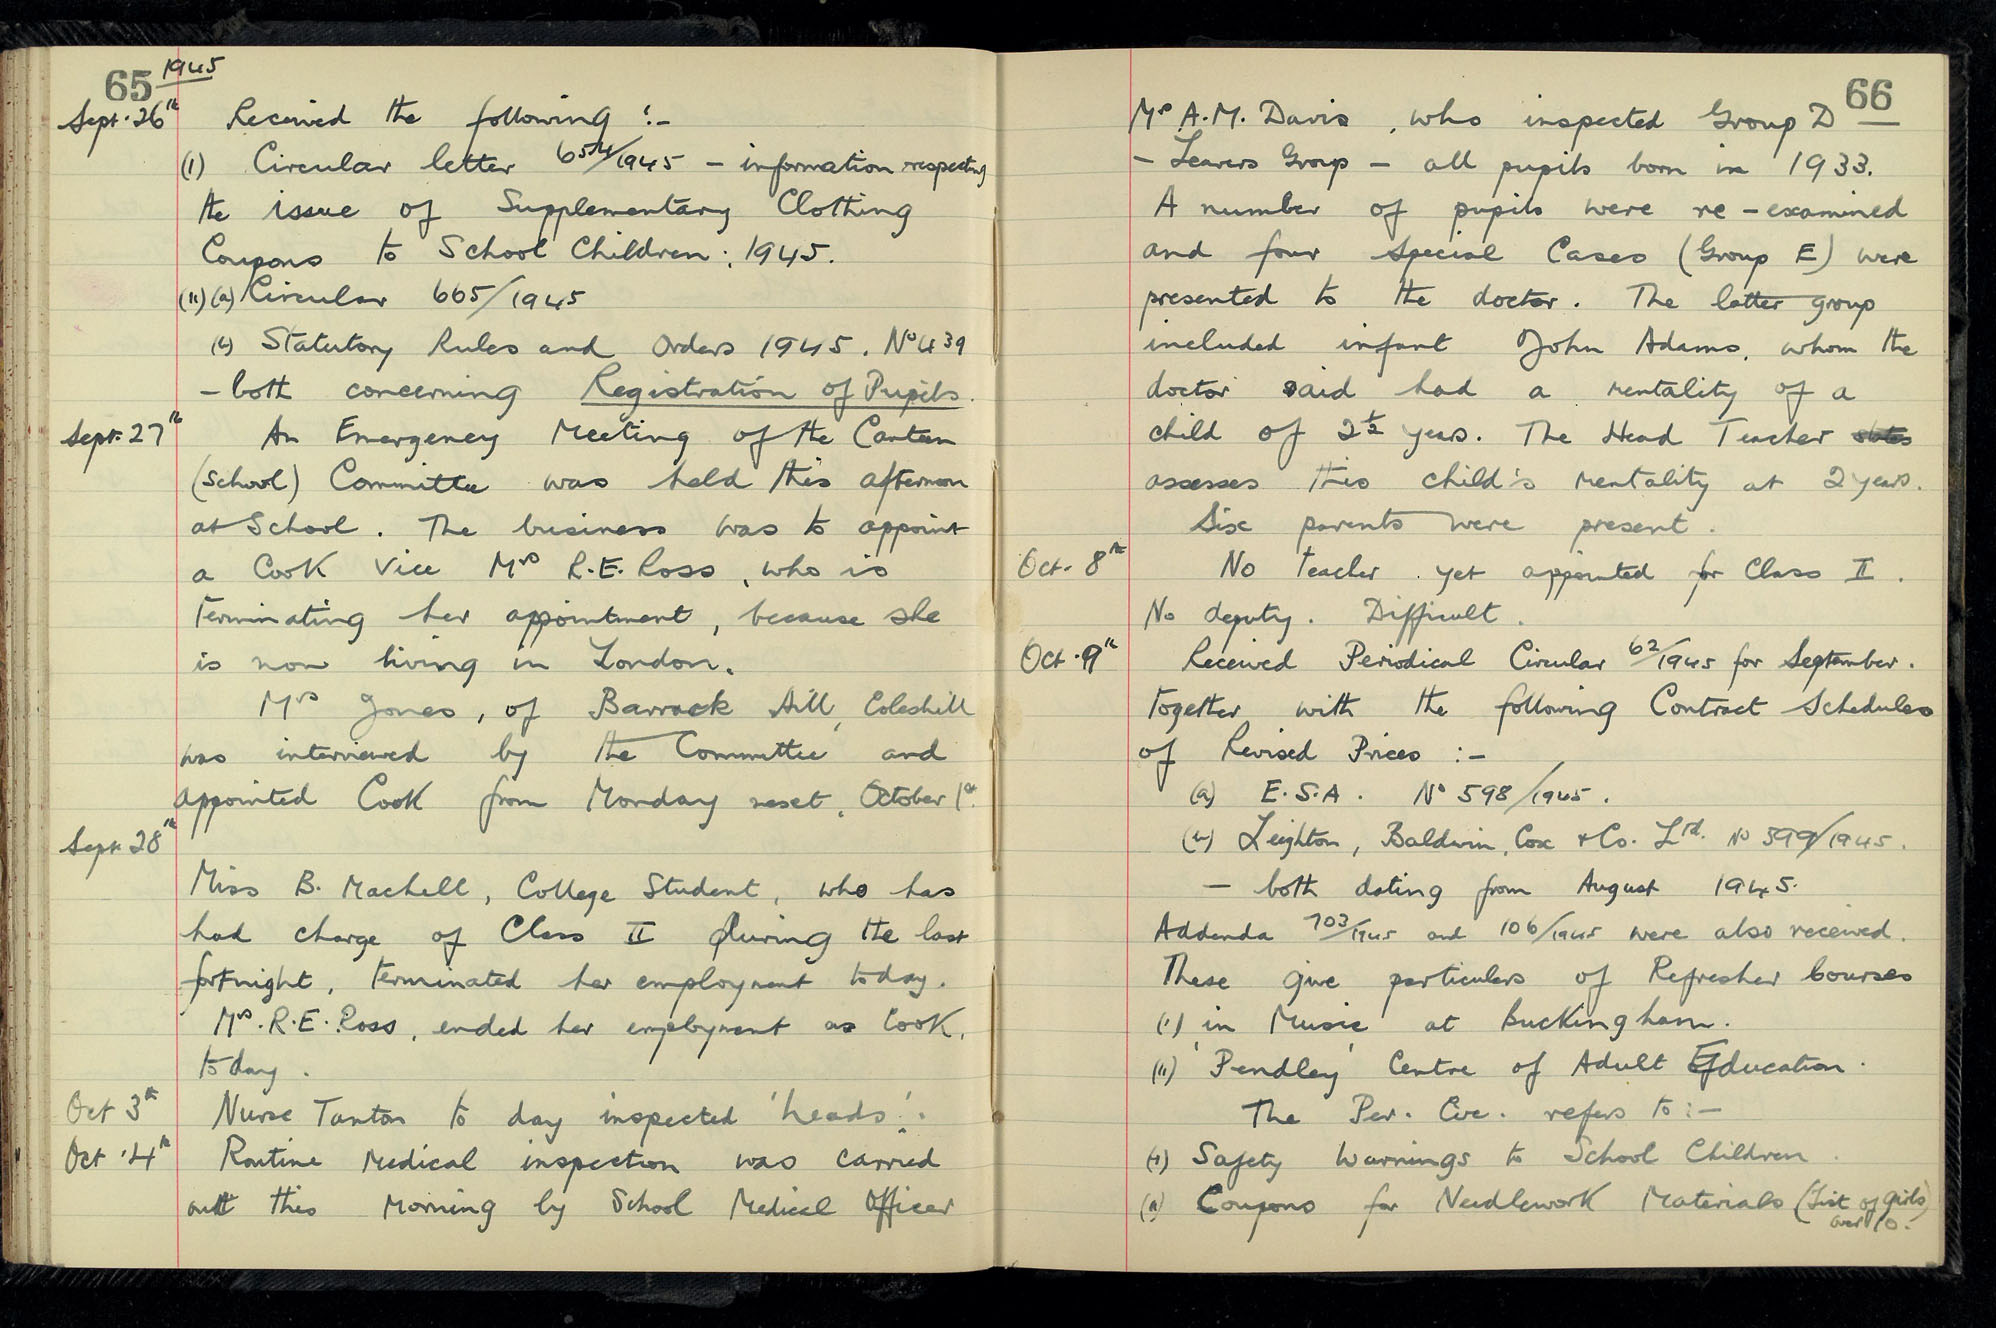 65 1945
Sept. 26th Received the following :-
(I) Circular letter 654/1945 - information respecting
the issue of Supplementary Clothing
Coupons to School Children : 1945.
(II) (a) Circular 665/1945
(b) Statutory Rules and Orders 1945. No 439
- both concerning Registration of Pupils.
Sept. 27th An Emergency Meeting of the Canteen
(School) Committee was held this afternoon
at School. The business was to appoint
a Cook vice Mrs R.E. Ross, who is
terminating her appointment, because she
is now living in London.
Mrs Jones, of Barrack Hill, Coleshill
was interviewed by the Committee and
appointed Cook from Monday next, October 1st.
Sept. 28th
Miss B. Machell, College Student, who has
had charge of Class II during the last
fortnight, terminated her employment today.
Mrs. R.E. Ross, ended her employment as Cook,
today.
Oct 3rd Nurse Tanton to day inspected 'heads'.
Oct. 4th Routine Medical inspection was carried
out this morning by School Medical Officer
66
Mrs A.M. Davis, who inspected Group D
- Leavers Group - all pupils born in 1933.
A number of pupils were re-examined
and four special cases (Group E) were
presented to the doctor. The latter group
included infant John Adams, whom the
doctor said had a mentality of a
child of 2½ years. The Head Teacher states
assesses this child's mentality at 2 years.
Six parents were present.
Oct. 8th No teacher yet appointed for Class II.
No deputy. Difficult.
Oct. 9th Received Periodical Circular 62/1945 for September.
together with the following Contract Schedules
of Revised Prices :-
(a) E.S.A. No 598/1945.
(b) Leighton, Baldwin, Cox & Co. Ltd. No 599/1945.
- both dating from August 1945.
Addenda 703/1945 and 106/1945 were also received.
These give particulars of Refresher Courses
(i) in Music at Buckingham.
(ii) 'Pendley' Centre of Adult Education.
The Per. Circ. refers to :-
(i) Safety Warnings to School Children.
Coupons for Needlework Materials (List of girls
over 10.)